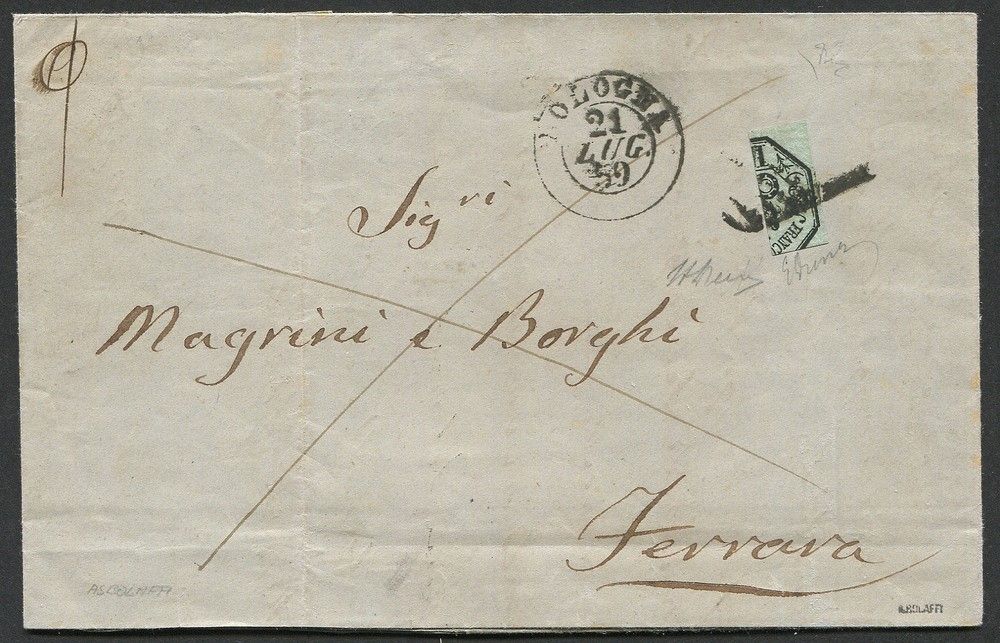 BOLOGNA
21
LUG.
59
C FRANC
Sig.ri
Magrini e Borghi
Ferrara
A.BOLAFFI